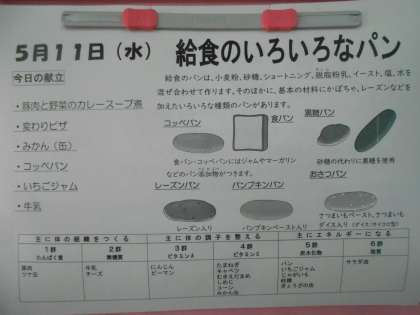 5月11日（水）　給食のいろいろなパン
今日の献立
・豚肉と野菜のカレースープ煮
・変わりピザ
・みかん（缶）
・コッペパン
・いちごジャム
・牛乳
給食のパンは、小麦粉、砂糖、ショートニング、脱脂粉乳、イースト、塩、水を
混ぜ合わせて作ります。そのほかに、基本の材料にかぼちゃ、レーズンなどを
加えたいろいろな種類のパンがあります。
コッペパン　食パン　黒糖パン
食パン・コッペパンにはジャムやマーガリン
などのパン添加物がつきます。
砂糖の代わりに黒糖を使用
レーズンパン　パンプキンパン　おさつパン
レーズン入り　パンプキンペースト入り
さつまいもペースト、さつまいも
ダイス入り（ダイス：サイコロ型）
主に体の組織をつくる　主に体の調子を整える　主にエネルギーになる
1群　2群　3群　4群　5群　6群
たんぱく質　無機質　ビタミンA　ビタミンC　炭水化物　脂質
豚肉　牛乳　にんじん　たまねぎ　パン　サラダ油
ツナ缶　チーズ　ピーマン　キャベツ　いちごジャム
むきえだまめ　じゃがいも
しめじ　砂糖
コーン　ぎょうざの皮
みかん缶